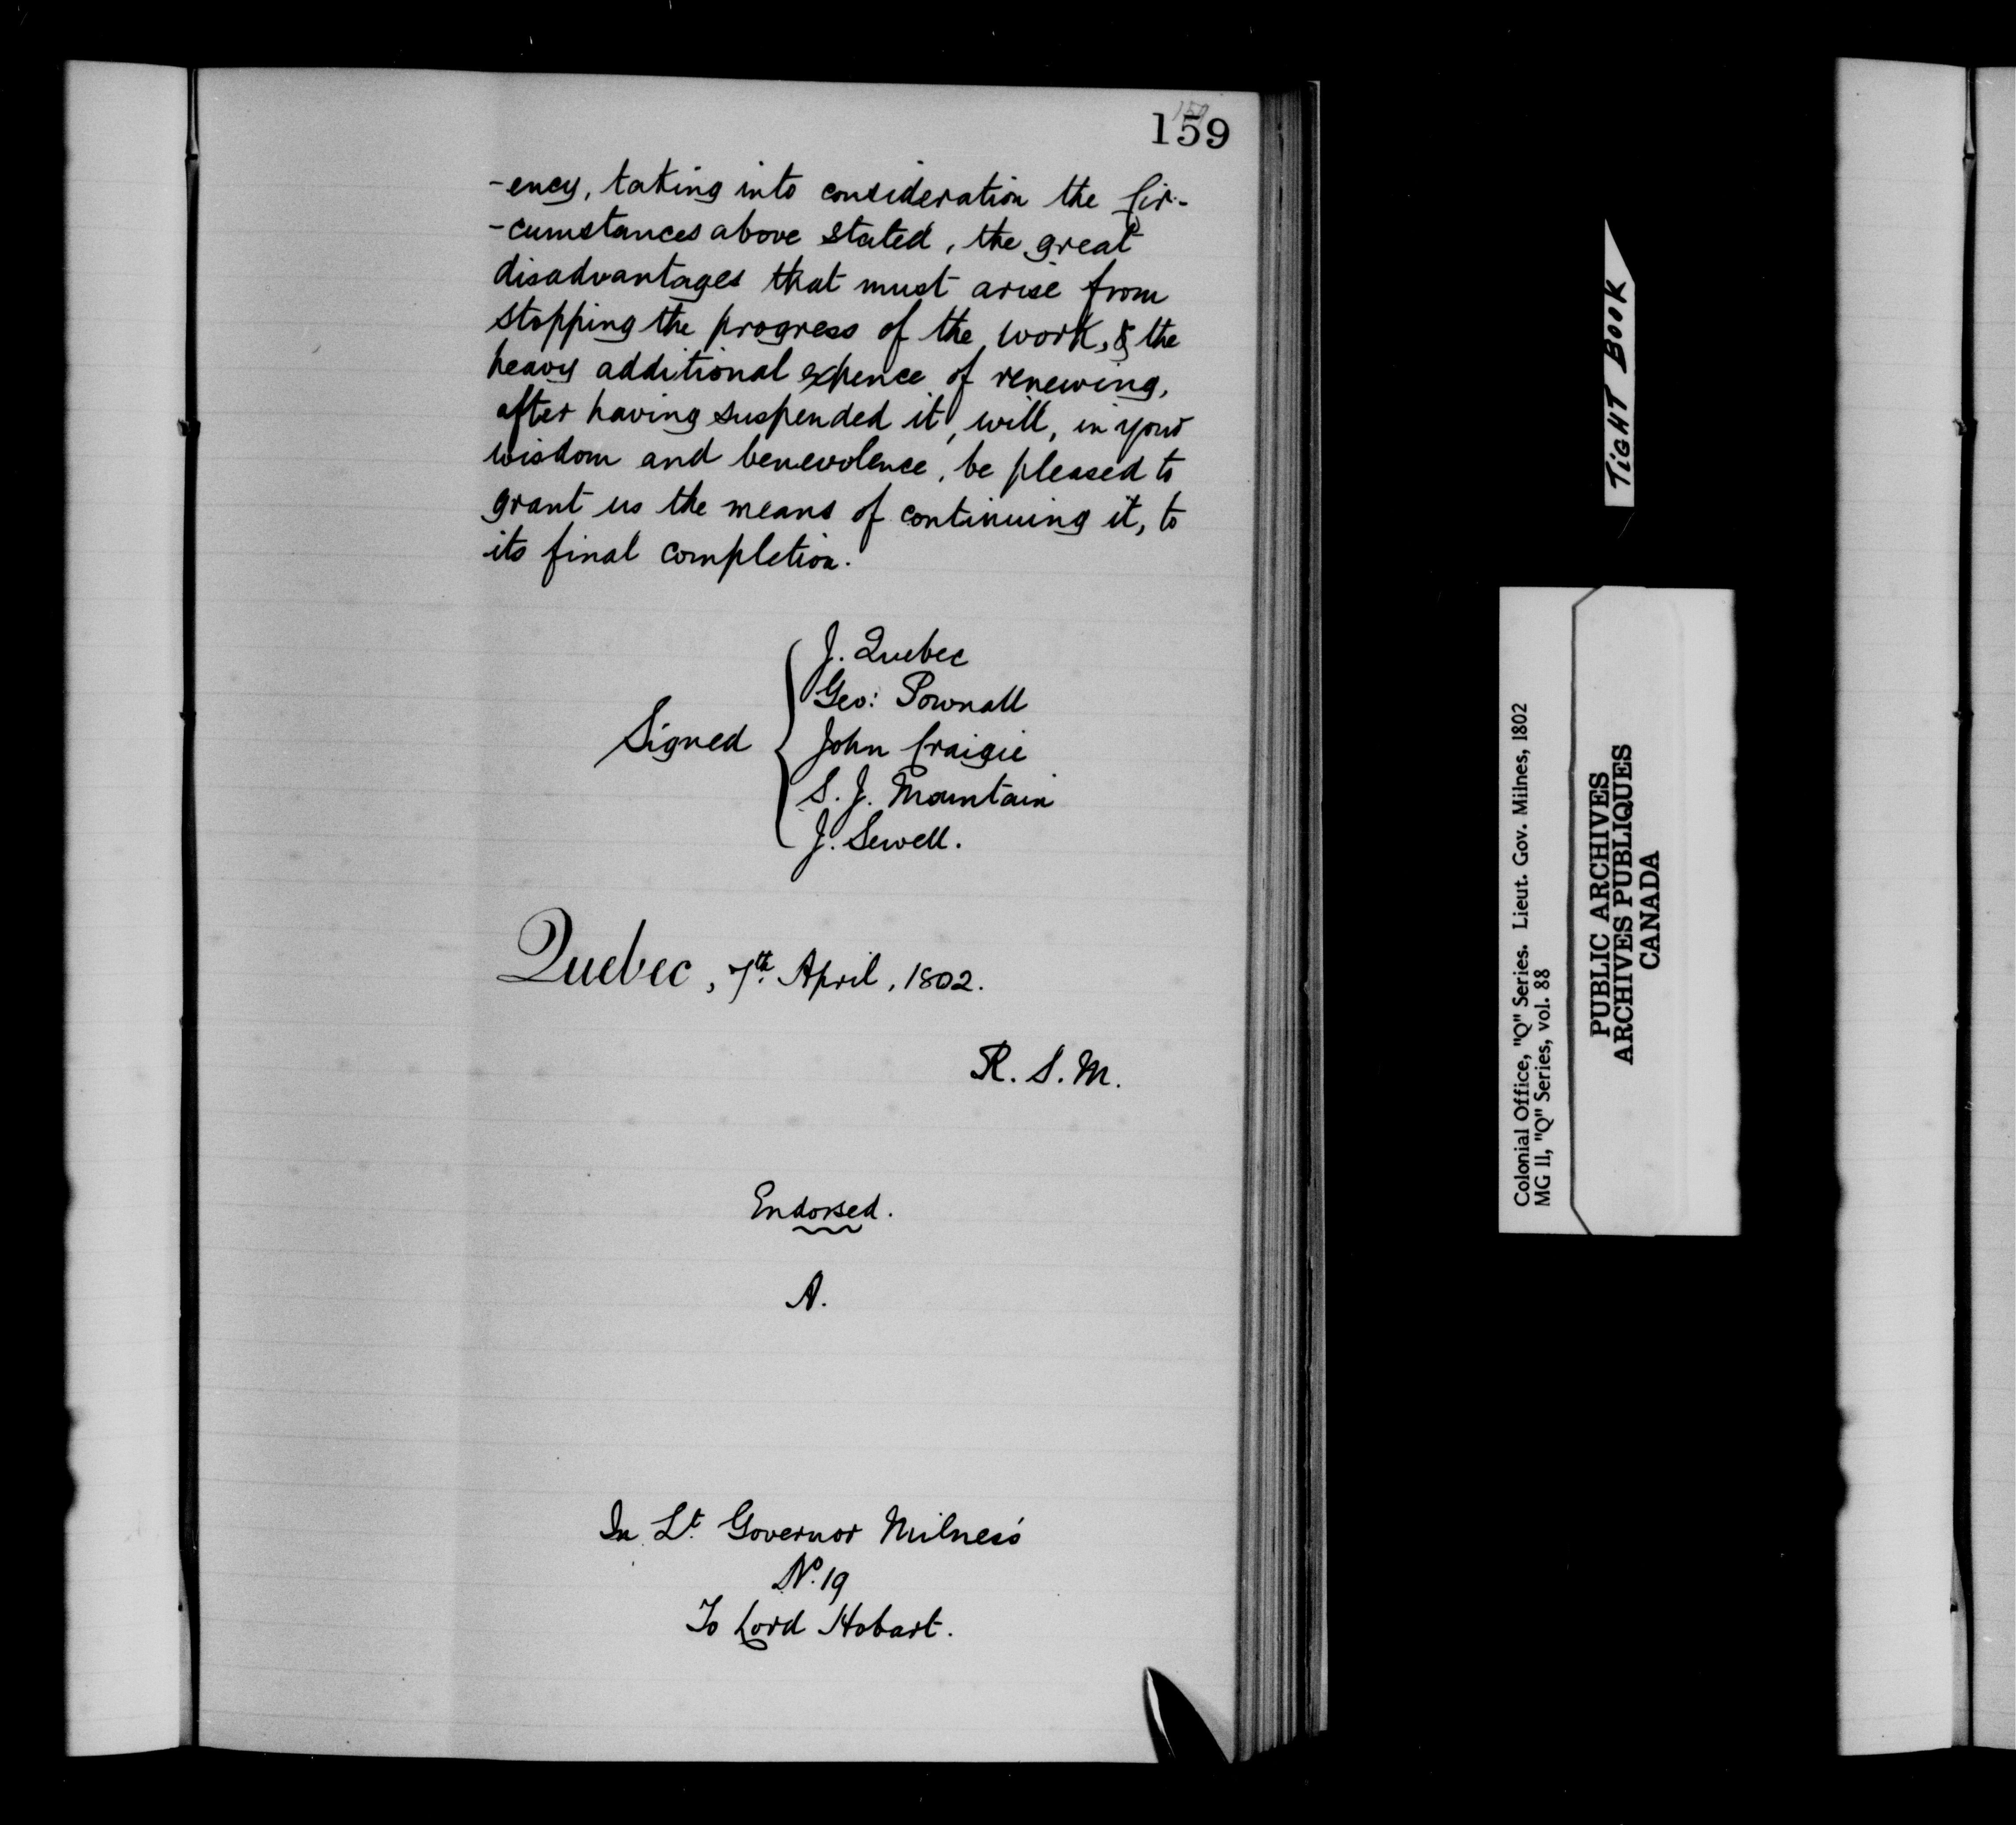 159
159
-ency, taking into consideration the Cir-
-cumstances above stated, the great
disadvantages that must arise from
stopping the progress of the work, & the
heavy additional expence of renewing,
after having suspended it, will, in your
wisdom and benevolence, be pleased to
grant us the means of continuing it, to
its final completion.
J. Quebec
Geo: Pownall
Signed John Craigie
S. J. Mountain
J. Sewell.
Quebec, 7th April, 1802.
R. S. M.
Endorsed.
A.
In Lt Governor Milnes's
No. 19
To Lord Hobart.
TIGHT BOOK
Colonial Office, "Q" Series. Lieut. Gov. Milnes, 1802
MG 11, "Q" Series, vol. 88
PUBLIC ARCHIVES
ARCHIVES PUBLIQUES
CANADA